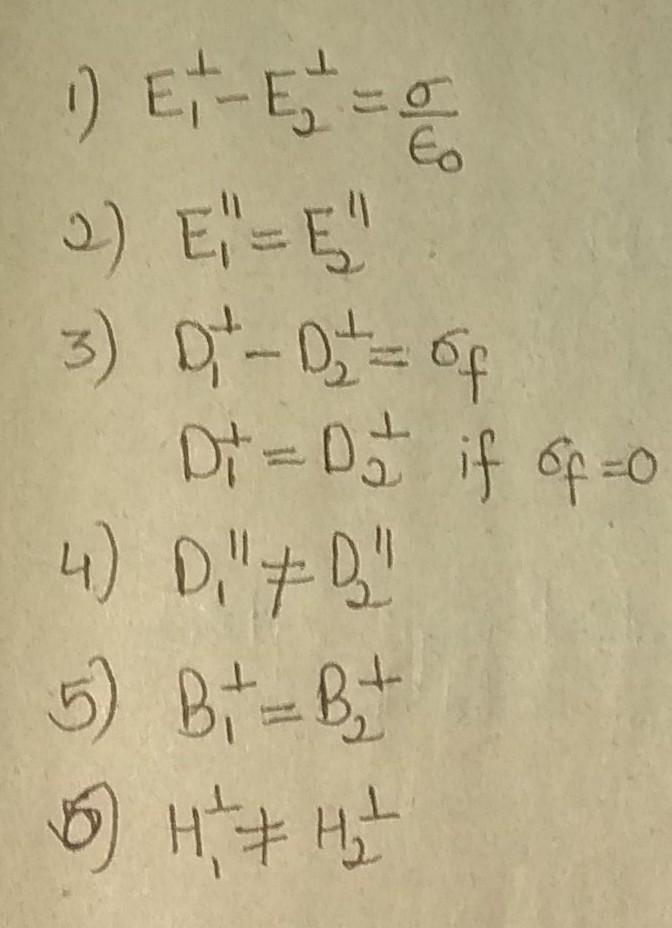 1) E₁^⊥ − E₂^⊥ = σ/ϵ₀
2) E₁^∥ = E₂^∥
3) D₁^⊥ − D₂^⊥ = σ_f
D₁^⊥ = D₂^⊥ if σ_f = 0
4) D₁^∥ ≠ D₂^∥
5) B₁^⊥ = B₂^⊥
6) H₁^⊥ ≠ H₂^⊥